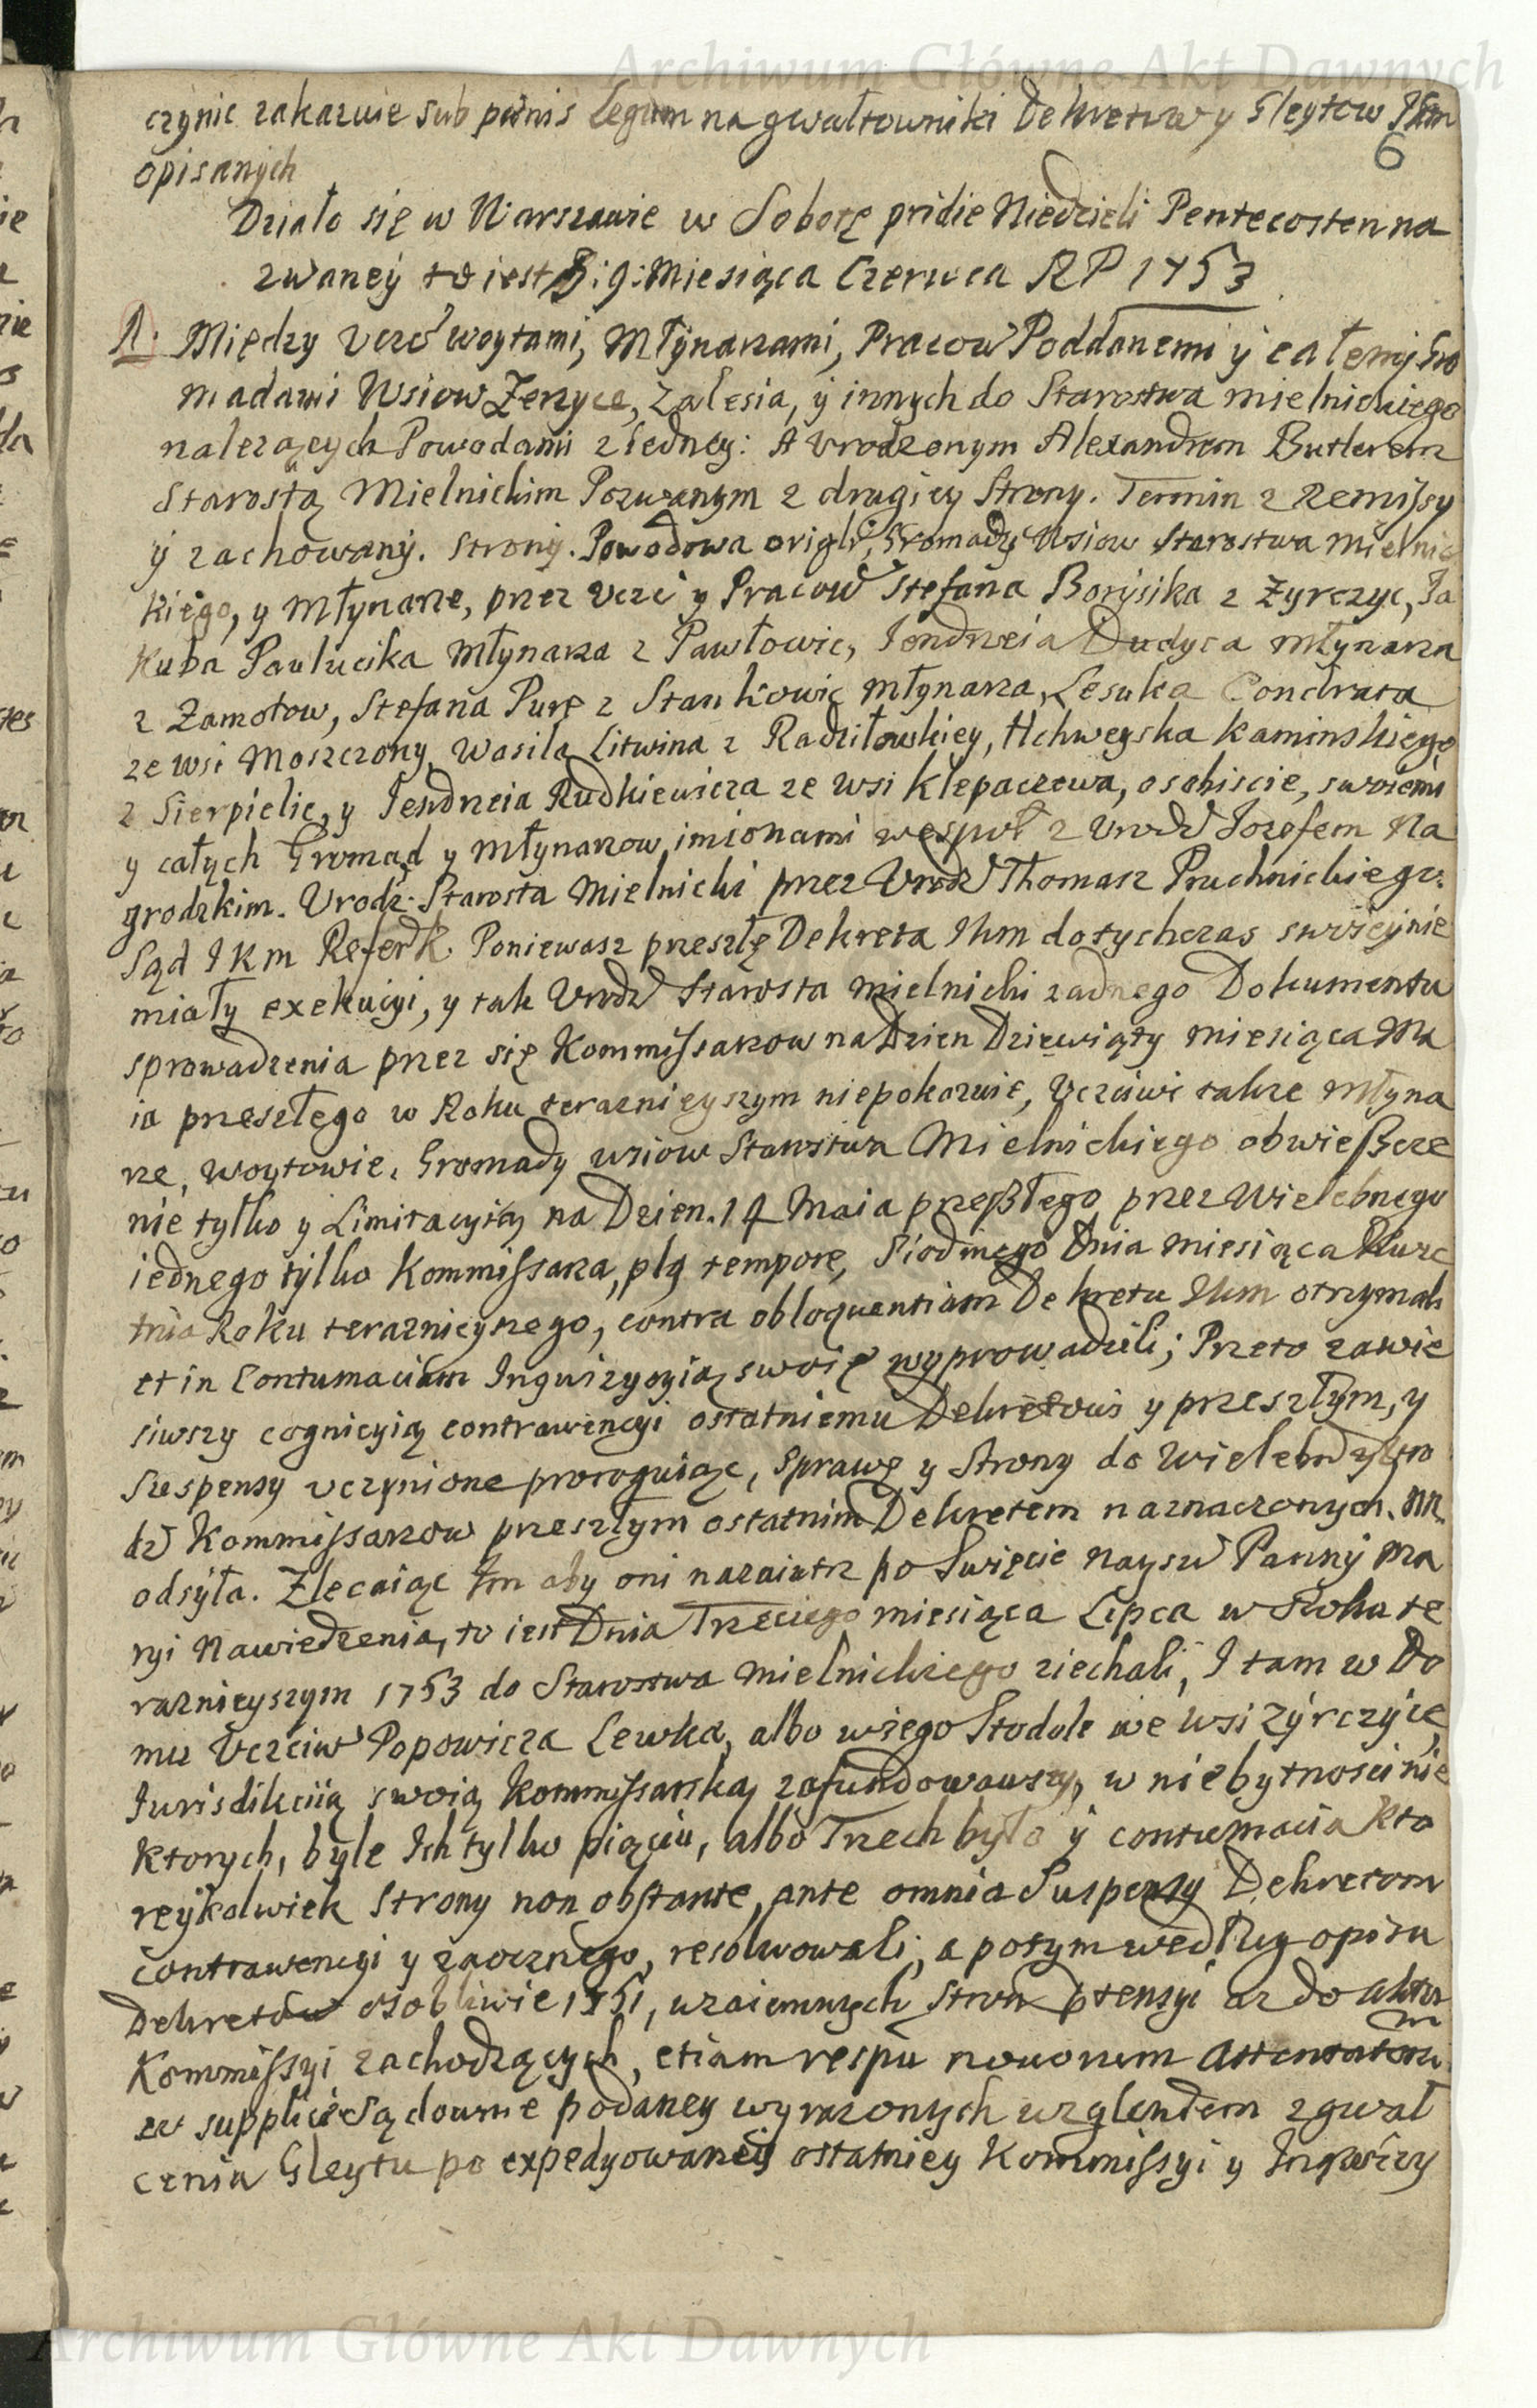 Archiwum Główne Akt Dawnych
czynic zakazuie sub pœnis Legum na gwałtowniki Dekretow y Gleytow JKm
6
opisanych
Działo się w Warszawie w Sobotę pridie Niedzieli Pentecosten na
zwaney to iest D: 9: Miesiąca Czerwca RP 1753
1. Między Vczć woytami, Młynarzami, Pracow Poddanemi y całemi Gro
madami Wsiow Zerzyce, Zalesia, y innych do Starostwa mielnickiego
nalezących Powodami z iedney: A Vrodzonym Alexandrem Butlerem
Starostą Mielnickim Pozwanym z drugiey Strony. Termin z Remissy
y zachowany. Strony. Powodowa Gromady Wsiow Starostwa Mielnic
kiego, y Młynarze, przez Vczć y Pracow Stefana Borysika z Zyrczyc, Ja
kuba Paulucika Młynarza z Pawłowic, Jendrzeia Dudyca młynarza
z Zamotow, Stefana Purę z Stankowic młynarza, Lesuka Condrata
ze wsi Moszczony, Wasila Litwina z Radziłowkiey, Kaminskiego
z Sierpielic, y Jendrzeia Rudkiewicza ze wsi Klepaczewa, osobiscie, swoiemi
y całych Gromad y młynarzow imionami wespoł z Vrodz Jozefem Na
grodzkim. Vrodz: Starosta Mielnicki przez Vrodz Thomasz Pruchnickiego.
Sąd JKm Referk. Poniewasz przeszłe Dekreta JKm dotychczas swoiey nie
miały exekucyi, y tak Vrodz Starosta mielnicki zadnego Dokumentu
sprowadzenia przez się Kommissarzow na Dzien Dziewiąty miesiąca Ma
ia przeszłego w Roku teraznieyszym niepokazuie, Vczciwi takze Młyna
rze, Woytowie, Gromady wsiow Starostwa Mielnickiego obwieszcze
nie tylko y Limitacyią na Dzien. 14 Maia przeszłego przez Wielebnego
iednego tylko Kommissarza, plg tempore, Siodmego Dnia miesiąca Kwie
tnia Roku teraznieyszego, contra obloquentiam Dekretu JKm otrzymali
et in Contumaciam Inquizycyią swoię wyprowadzili; Przeto zawie
siwszy cognicyią contrawencyi ostatniemu Dekretowi y przeszłym, y
Suspensy vczynione proroguiąc, Sprawę y Strony do Wielebn y Vro
dz Kommissarzow przeszłym ostatnim Dekretem naznaczonych.
odsyła. Zlecaiąc Im aby oni nazaiutrz po Swięcie Nayśw Panny Ma
ryi Nawiedzenia, to iest Dnia Trzeciego miesiąca Lipca w Roku te
raznieyszym 1753 do Starostwa Mielnickiego ziechali, I tam w Do
mu Vczciw Popowicza Lewka, albo w iego Stodole we wsi Zyrczyce,
Jurisdikciią swoią Kommissarską zafundowawszy, w niebytnosci nie
ktorych, byle Ich tylko pięciu, albo Trzech było y contumacia kto
reykolwiek Strony non obstante, ante omnia Suspensy Dekretom
contrawencyi y zaocznego, resolwowali, a potym według opisu
Dekretow osobliwie 1751, wzaiemnych Stron ptensyi az do aktu
Kommissyi zachodzących, etiam respu nouorum Attentatorum
w supplice Sądownie podaney wyrazonych wzglendem zgwał
cenia Gleytu po expedyowaney ostatniey Kommissyi y Inqwizy
Archiwum Główne Akt Dawnych